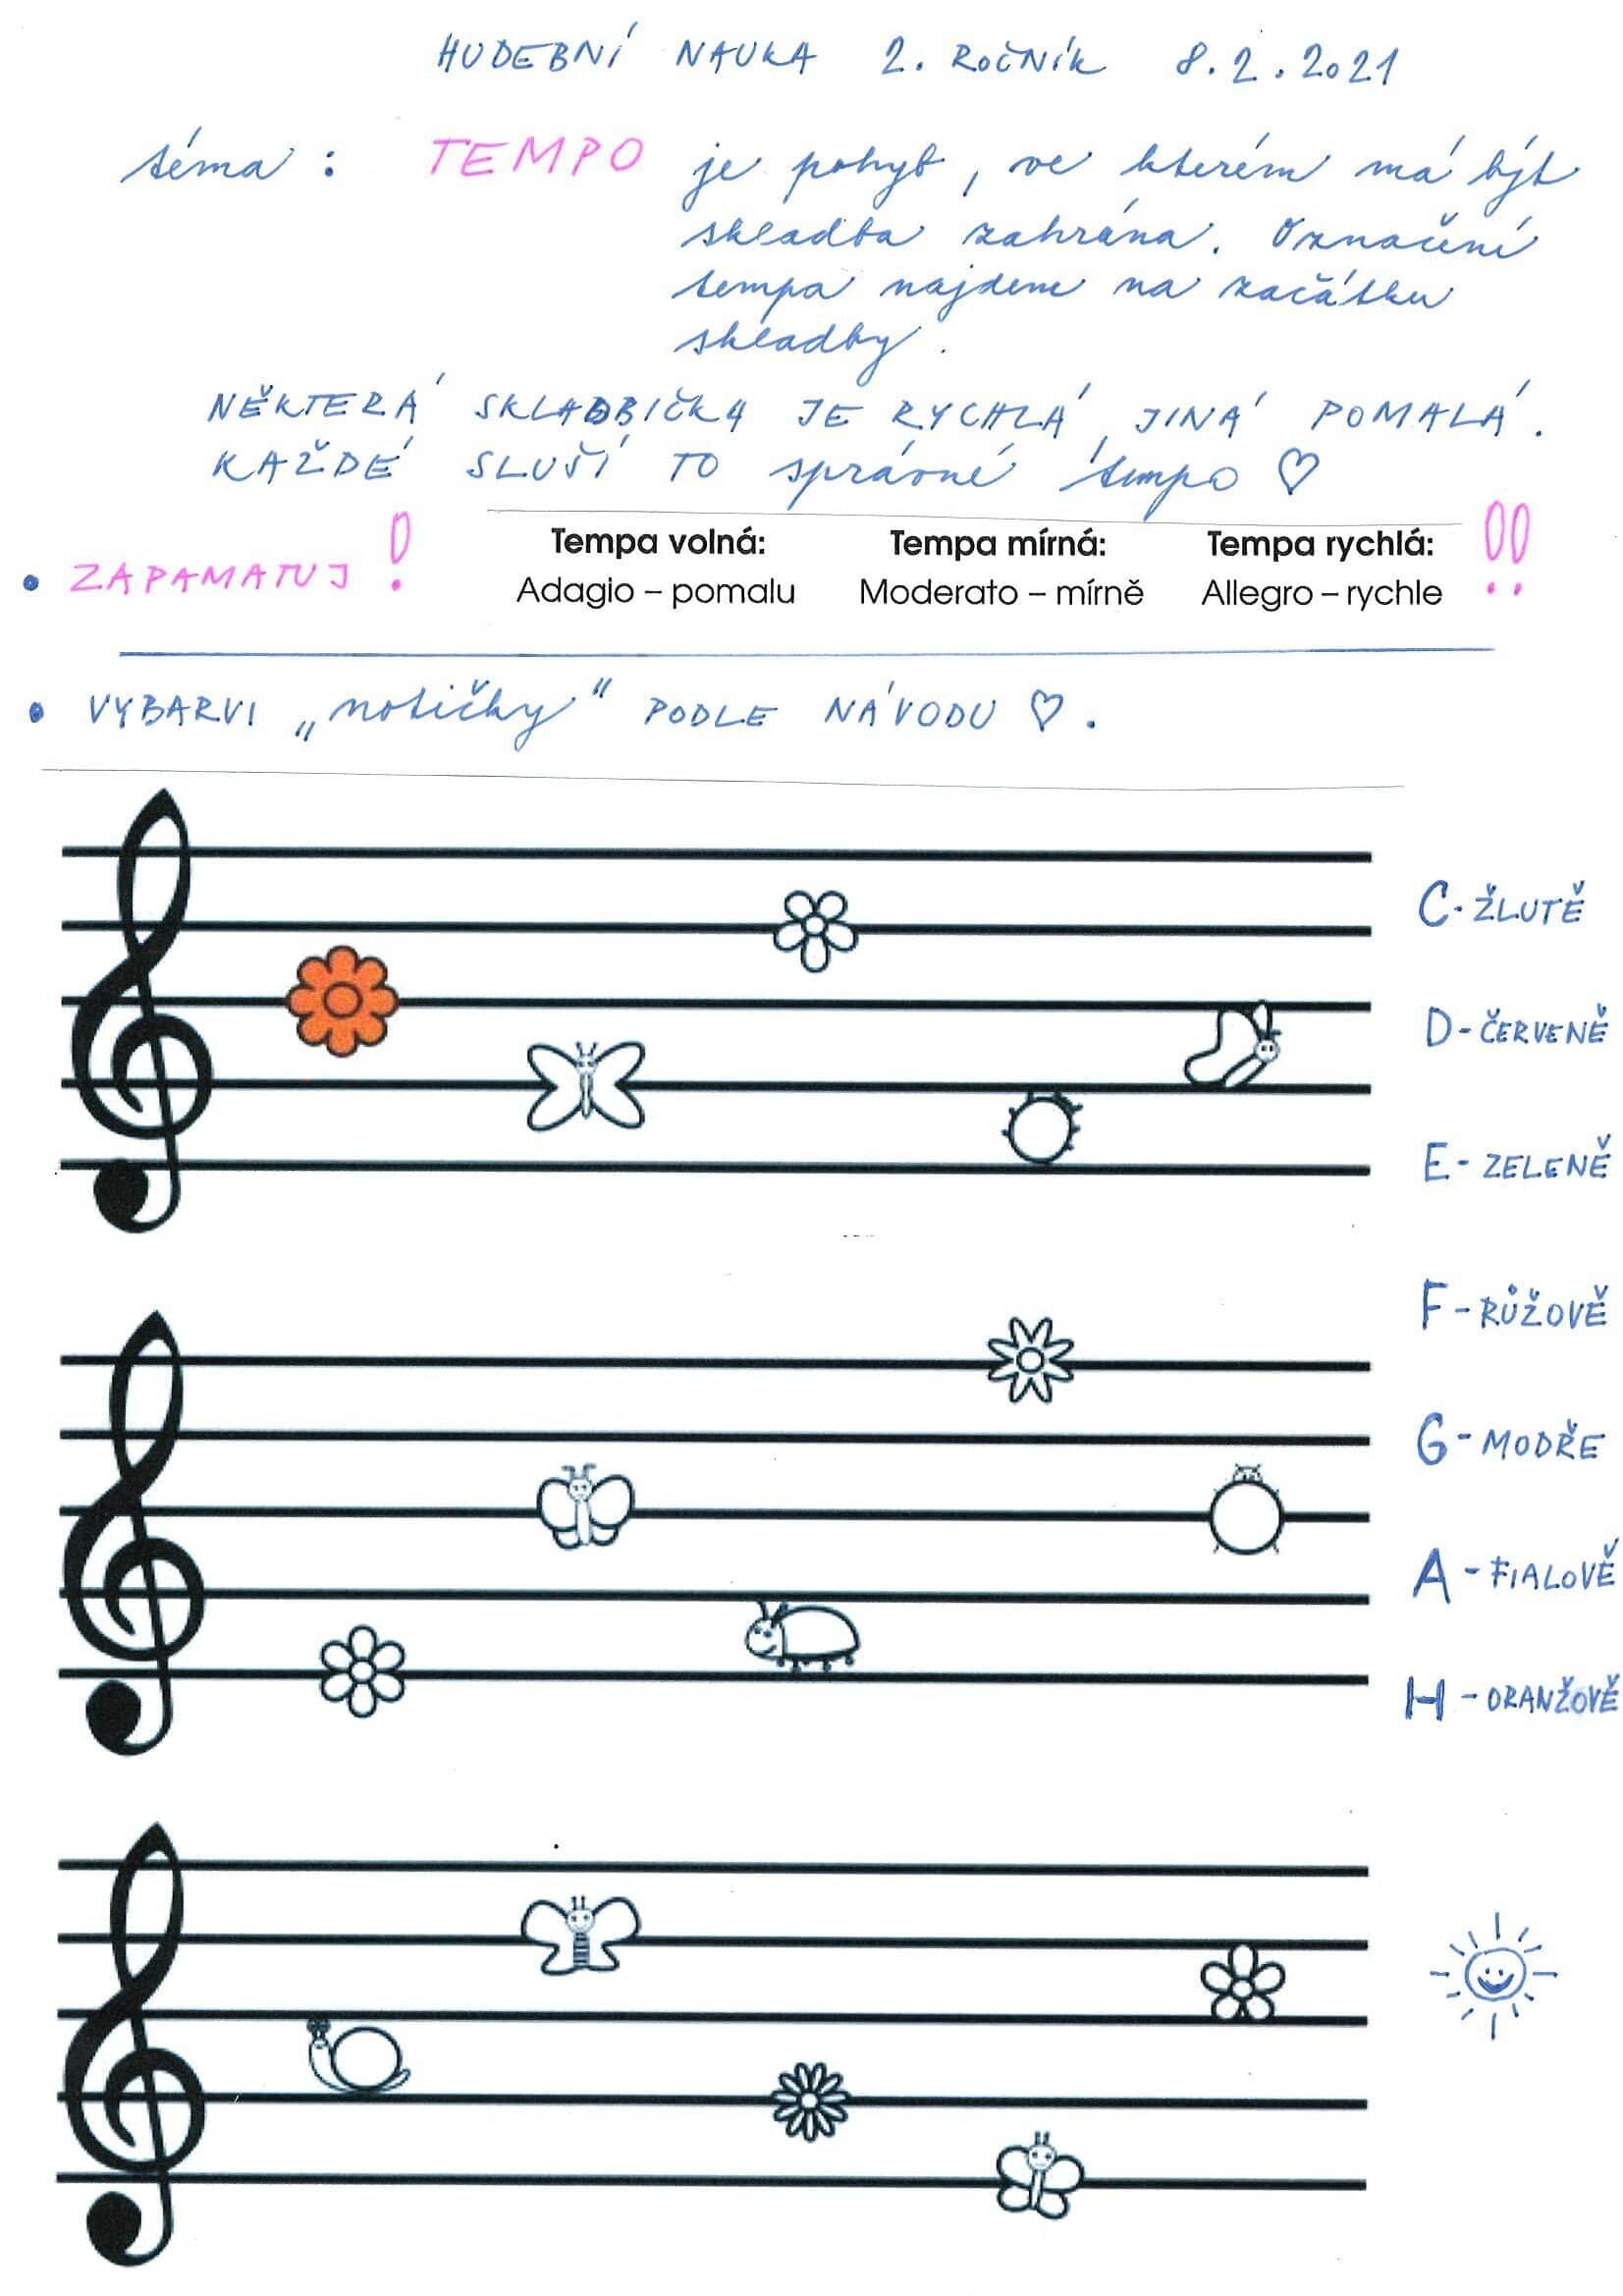 HUDEBNÍ NAUKA 2. ROČNÍK 8.2.2021
téma: TEMPO je pohyb, ve kterém má být
skladba zahrána. Označení
tempa najdem na začátku
skladby.
NĚKTERÁ SKLADBIČKA JE RYCHLÁ, JINÁ POMALÁ.
KAŽDÉ SLUŠÍ TO správné tempo ♡
• ZAPAMATUJ !
Tempa volná: Tempa mírná: Tempa rychlá: !!
Adagio – pomalu Moderato – mírně Allegro – rychle
• VYBARVI „notičky“ PODLE NÁVODU ♡.
C - ŽLUTĚ
D - ČERVENĚ
E - ZELENĚ
F - RŮŽOVĚ
G - MODŘE
A - FIALOVĚ
H - ORANŽOVĚ